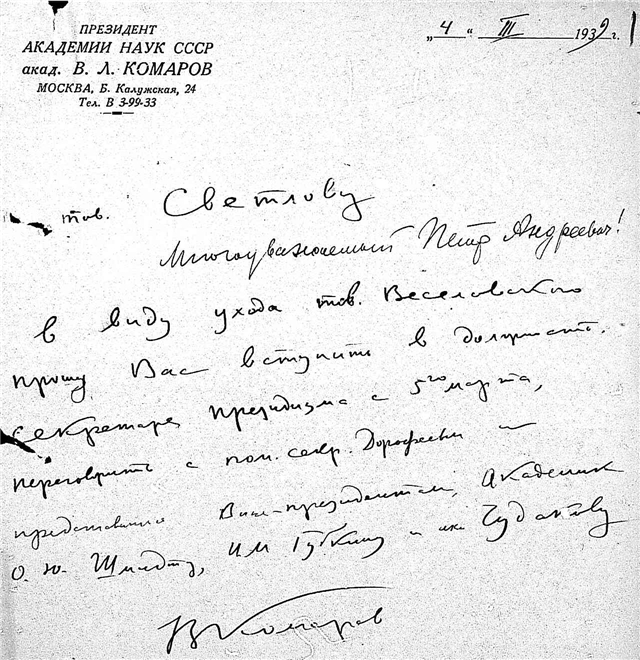 ПРЕЗИДЕНТ
АКАДЕМИИ НАУК СССР
акад. В. Л. КОМАРОВ
МОСКВА, Б. Калужская, 24
Тел. В 3-99-33
„4“ III 1939 г.
тов. Светлову
Многоуважаемый Петр Андреевич!
В виду ухода тов. Веселовского
прошу Вас вступить в должность
секретаря президиума с 5го марта,
переговорить с пом. секр. Дорофеевым и
Вице-президентам, Академик
О. Ю. Шмидту, И.М. Губкину и Чудакову
В Комаров